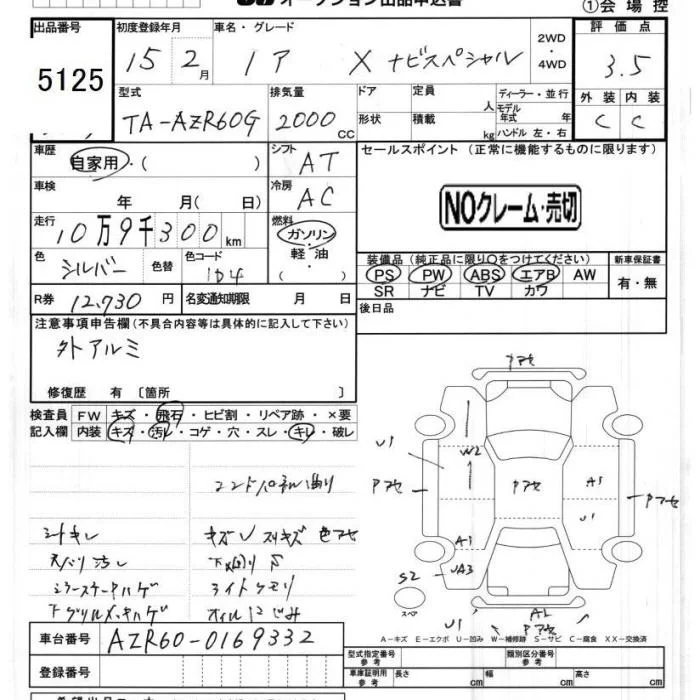 オークション出品申込書
①会場控
出品番号 初度登録年月 車名・グレード 2WD・4WD 評価点
5125 15 2月 X ナビスペシャル 3.5
型式 排気量 ドア 定員 人 ディーラー・並行 外装 内装
TA-AZR60G 2000 CC 形状 積載 kg モデル年式 年 ハンドル 左・右 C C
車歴 自家用・( ) シフト AT セールスポイント (正常に機能するものに限ります)
車検 年 月( 日) 冷房 AC
NOクレーム・売切
走行 10万9千300 km 燃料 ガソリン・軽油・( )
色 シルバー 色替 色コード 1D4
装備品(純正品に限り○をつけてください) 新車保証書
PS PW ABS エアB AW 有・無
SR ナビ TV カワ
R券 12,930 円 名変通知期限 月 日 後日品
注意事項申告欄(不具合内容等は具体的に記入して下さい)
外アルミ
修復歴 有 〔箇所 〕
検査員 FW キズ・飛石・ヒビ割・リペア跡・×要
記入欄 内装 キズ・汚レ・コゲ・穴・スレ・キレ・破レ
シートキレ
天バリ汚レ
ライトクモリ
オイルにじみ
アアセ
U1 W2 アアセ アアセ A1 アアセ
U1
A1
UA3
S2
スペア
U1 A2
アアセ
A-キズ E-エクボ U-凹み W-補修跡 S-サビ C-腐食 XX-交換済
車台番号 AZR60-0169332
型式指定番号 参考 類別区分番号 参考
登録番号 車庫証明用 参考 長さ cm 幅 cm 高さ cm